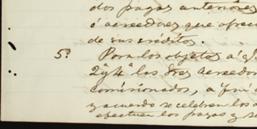 dos pagas anteriores
ó acreedores que ofrec
de sus créditos.
5.º Para los objetos a q
2 y 4 las Sres acreedo
comisionados, a fin
y acuerdo se celebran los a
efectuen los pagos y se